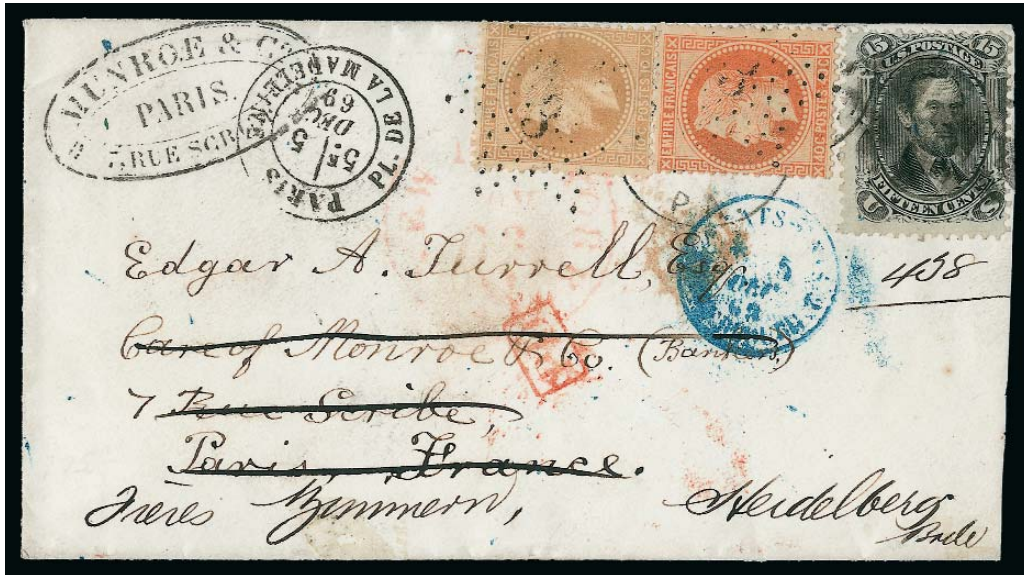 MUNROE & Co
PARIS.
7, RUE SCR
PARIS
5E
5
DEC
69
PL. DE LA MADELEINE
EMPIRE FRANÇAIS
EMPIRE FRANÇAIS
40C POSTES 40C
15 U.S. POSTAGE 15
FIFTEEN CENTS
U S
Edgar A. Turrell, Esq
438
Care of Monroe & Co. (Bankers)
7 Rue Scribe,
Paris, France.
Freres Zimmern, Heidelberg
Bade